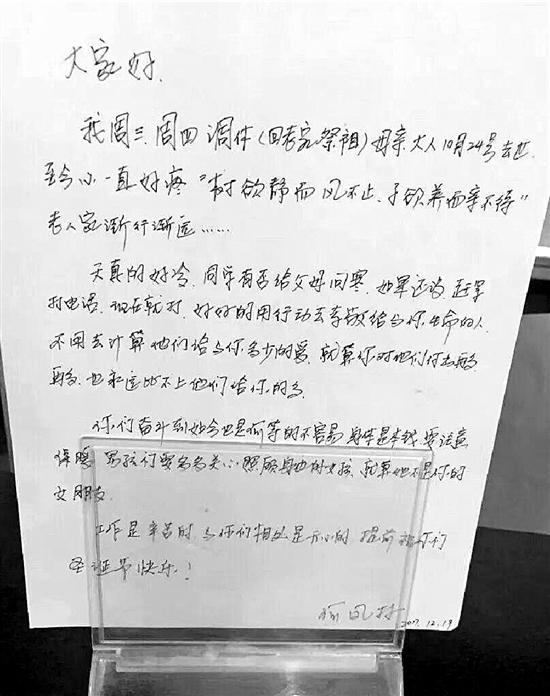 大家好.
我周三.周四调休(回老家祭祖)母亲大人10月24号去世.
至今心一直好疼"树欲静而风不止.子欲养而亲不待"
老人家渐行渐远……
天真的好冷.同学有否给父母问寒.如果还没.赶紧
打电话.现在就打.好好的用行动去孝敬给与你.生命的人.
不用去计算他们给与你多少的爱.就算你对他们付出再多
再多.也永远比不上他们给你的多.
你们奋斗到如今也是何等的不容易.身体是本钱.要注意
保暖.男孩们要多多关心.照顾身边的女孩.就算她不是你的
女朋友.
工作是辛苦的.与你们相处是开心的.提前祝你们
圣诞节快乐!
2017.12.19